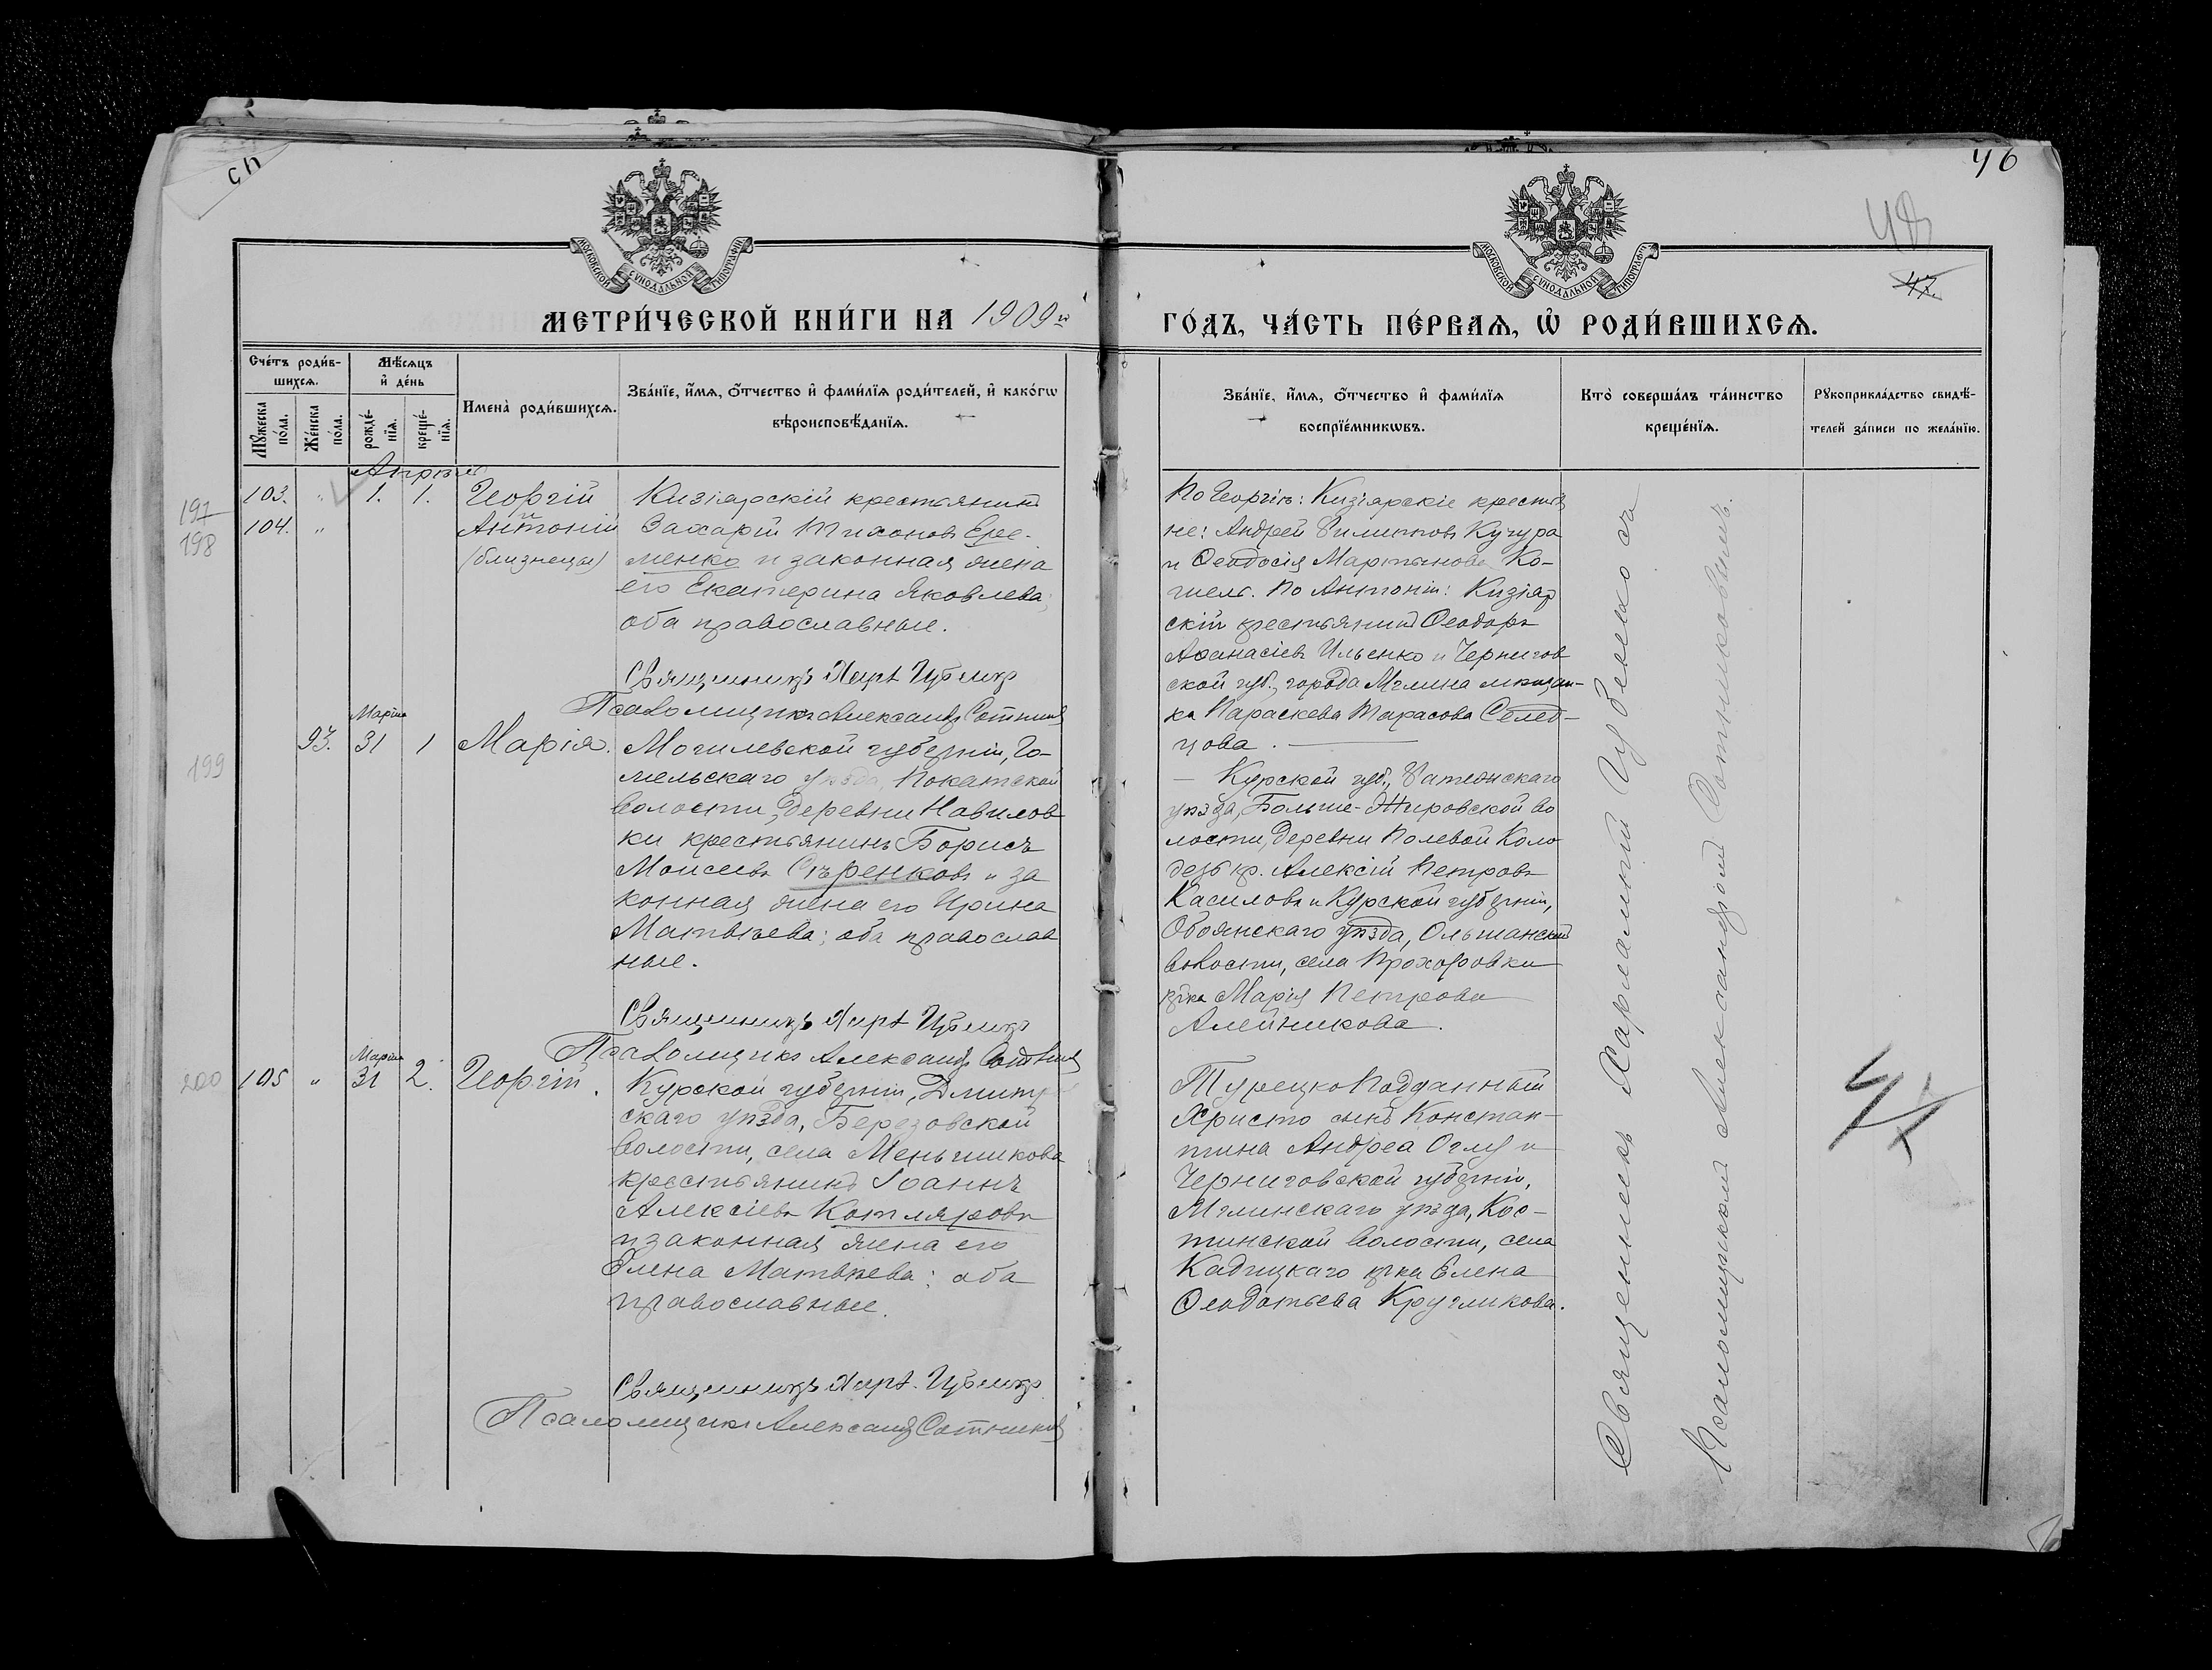 45
46
48
47.
МОСКОВСКОЙ СУНОДАЛЬНОЙ ТИПОГРАФІИ
МОСКОВСКОЙ СУНОДАЛЬНОЙ ТИПОГРАФІИ
МЕТРИ́ЧЕСКОЙ КНИ́ГИ НА 1909й
ГО́ДЪ, ЧА́СТЬ ПЕ́РВАѦ, Ѡ РОДИ́ВШИХСѦ.
Сче́тъ роди́в-
шихсѧ.
Мꙋ́жеска по́ла.
Же́нска по́ла.
Мѣ́сѧцъ
и҆ де́нь
рожде́-нїѧ.
креще́-нїѧ.
Имена̀ роди́вшихсѧ.
Зва́нїе, и҆́мѧ, ѻ҆́тчество и҆ фами́лїѧ роди́телей, и҆ како́гѡ
вѣроисповѣ́данїѧ.
Зва́нїе, и҆́мѧ, ѻ҆́тчество и҆ фами́лїѧ
воспрїе́мникѡвъ.
Кто̀ соверша́лъ та́инство
креще́нїѧ.
Рꙋкоприкла́дство свидѣ́-
телей за́писи по жела́нїю.
Апрѣль
197
103. " 1. 1. Георгій
и
198
104. " Антоній
(близнецы)
Кизіярскій крестьянинъ
Захарій Тихоновъ Ере-
менко и законная жена
его Екатерина Яковлева;
оба православные.
Священникъ Харл. Цубенко
Псаломщикъ Александръ Сотников
По Георгію: Кизіярскіе крестья
не: Андрей Филипповъ Кучура
и Ѳеодосія Мартынова Ко-
шель. По Антонію: Кизіяр
скій крестьянинъ Ѳеодоръ
Аѳанасіевъ Ильенко и Чернигов
ской губ., города Мглина мѣщан-
ка Параскева Тарасова Селед-
цова.
199
Марта
93. 31 1 Марія.
Могилевской губерніи, Го-
мельскаго уѣзда, Покатской
волости, деревни Навилов
ки крестьянинъ Борисъ
Моисеевъ Сѣренковъ и за
конная жена его Ирина
Матвѣева; оба православ
ные.
Священникъ Харл. Цубенко
Псаломщикъ Александръ Сотников
— Курской губ., Фатежскаго
уѣзда, Больше-Жировской во
лости, деревни Полевой Коло
дезь кр. Алексій Петровъ
Касиловъ и Курской губерніи,
Обоянскаго уѣзда, Ольшанской
волости, села Прохоровки
кр-ка Марія Петрова
Алейникова.
200
Марта
105 " 31 2. Георгій.
Курской губерніи, Дмитр
скаго уѣзда, Березовской
волости, села Меньшикова
крестьянинъ Іоаннъ
Алексіевъ Котляровъ
и законная жена его
Елена Матвѣева; оба
православные.
Священникъ Харл. Цубенко
Псаломщикъ Александръ Сотников
Турецко Подданный
Христо сынъ Констан-
тина Андреа Оглу и
Черниговской губерніи,
Мглинскаго уѣзда, Кос-
тинской волости, села
Кадецкаго кр-ка Елена
Ѳеодотьева Кругликова.
Священникъ Харлампій Цубенко съ
Псаломщикомъ Александромъ Сотниковымъ.